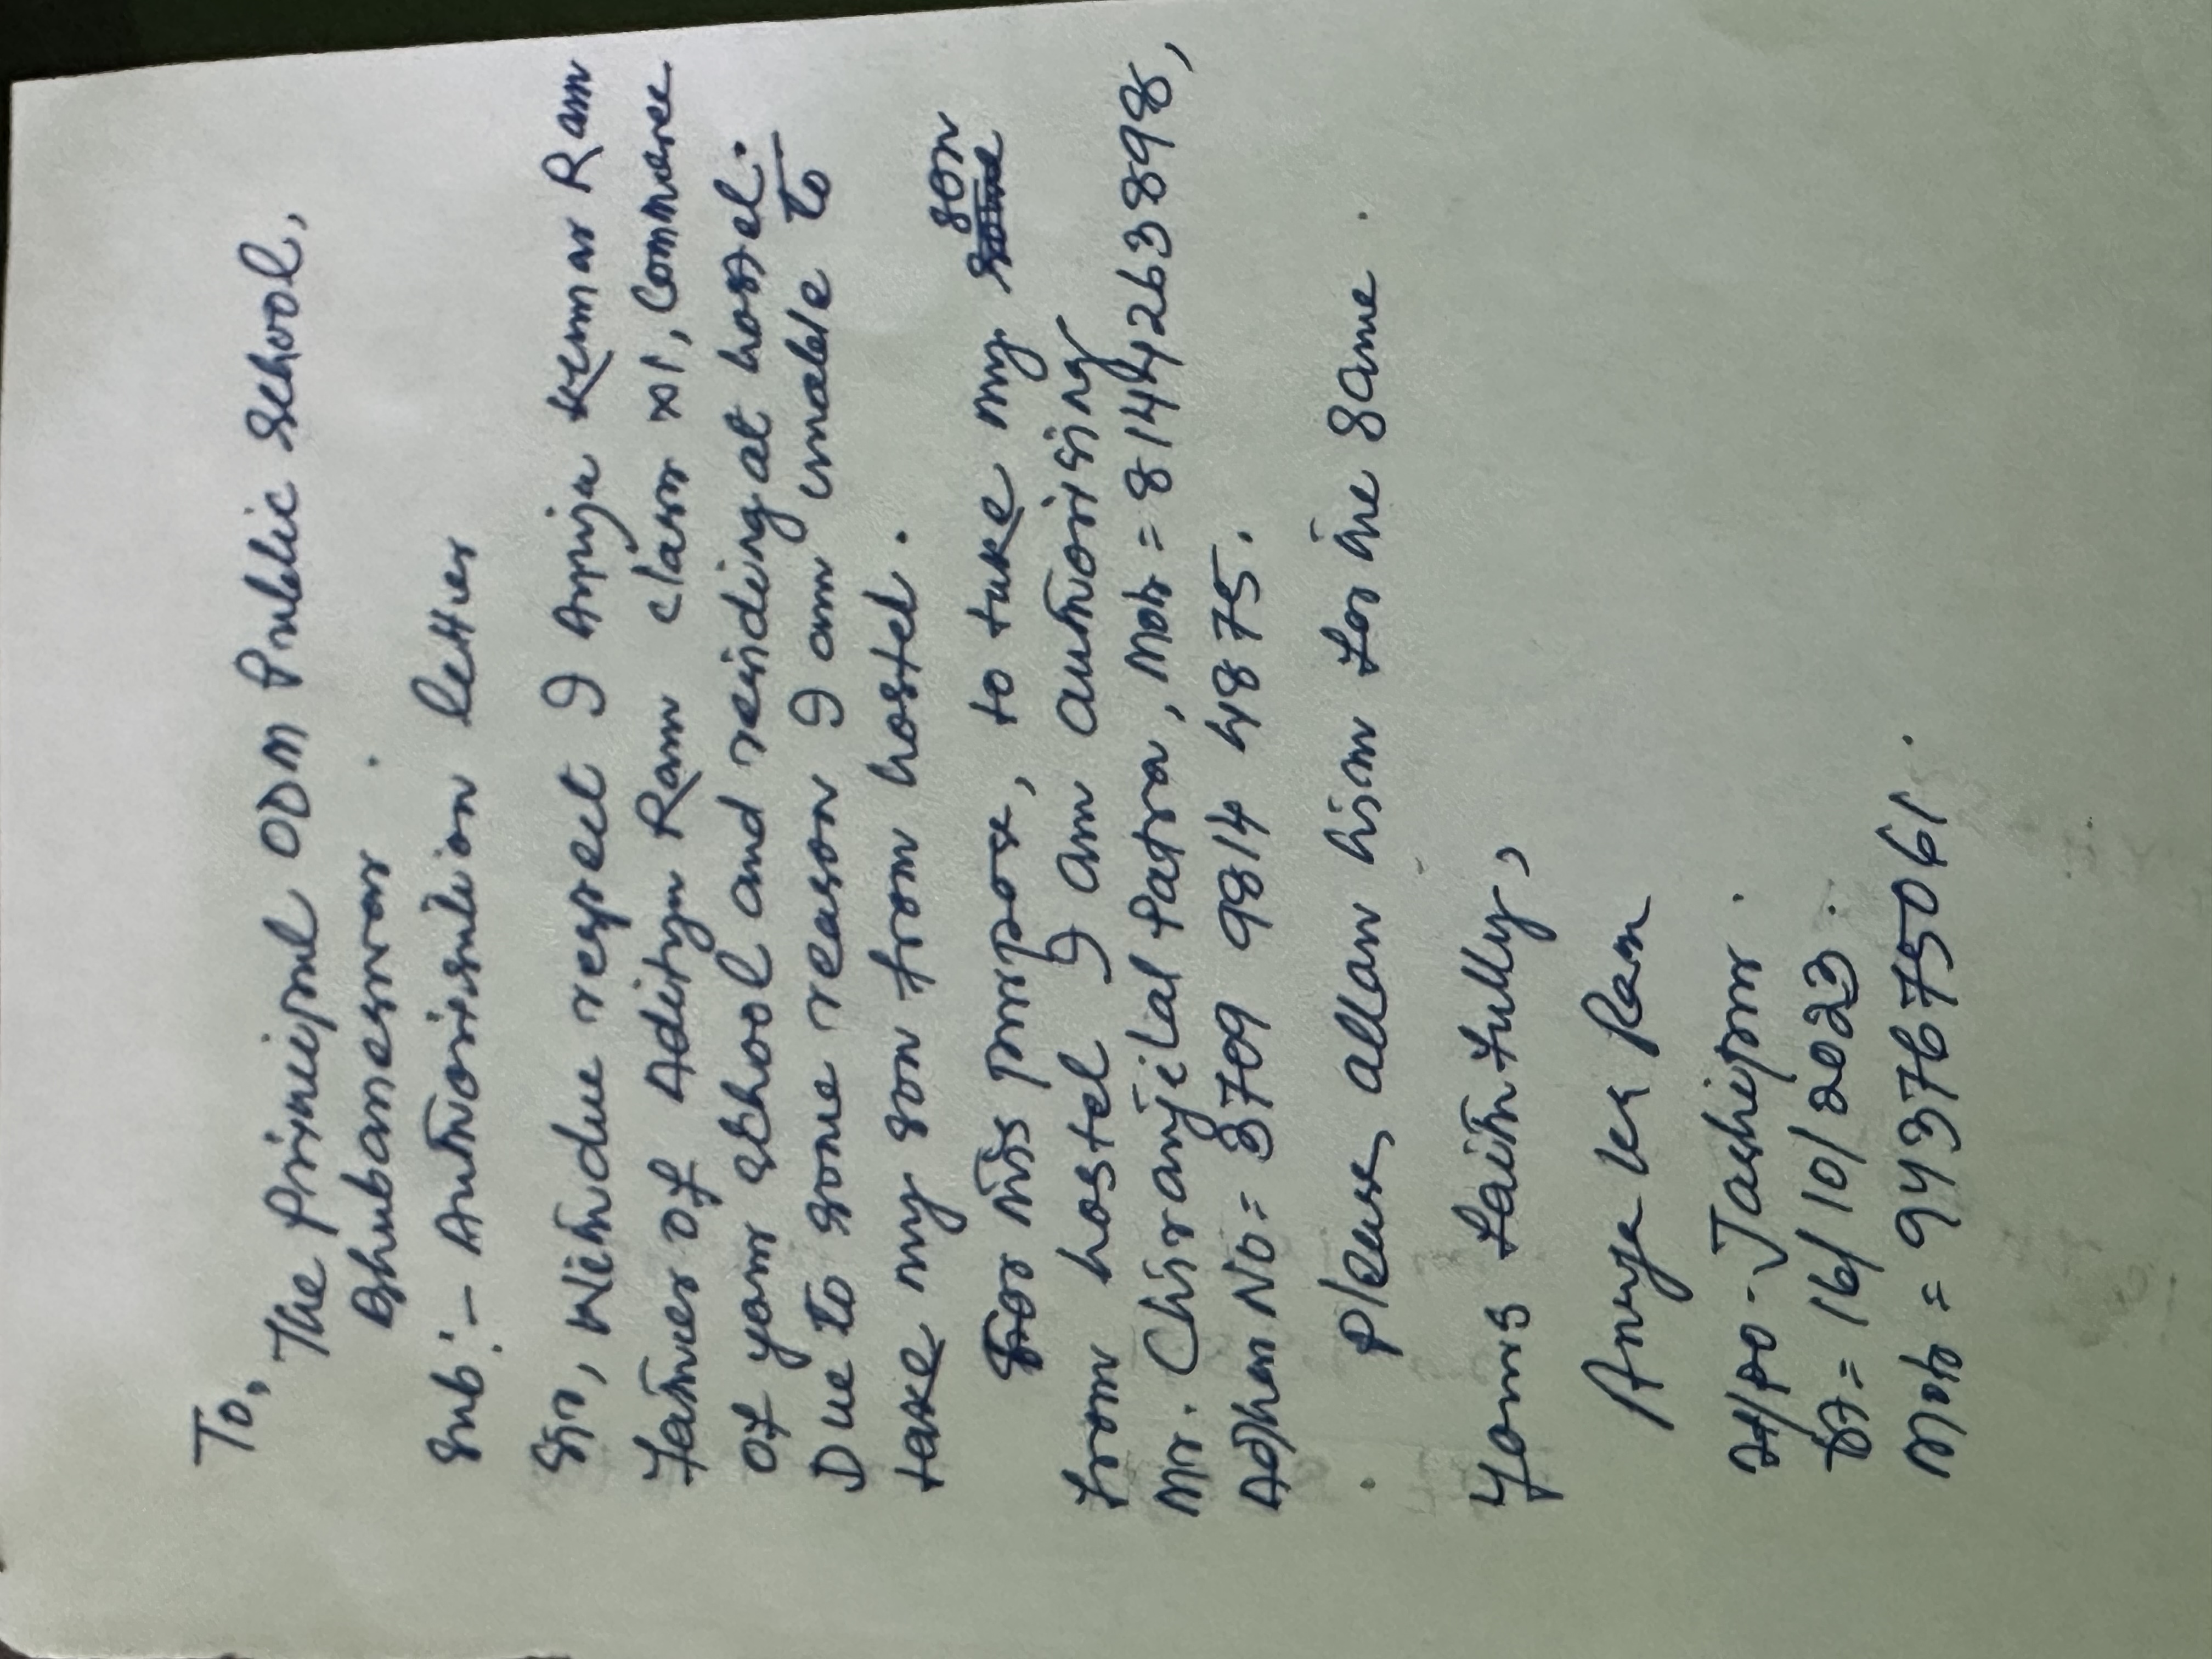 To,
The Principal ODM Public School,
Bhubaneswar.
Sub:- Authorisation letter
Sir, With due respect I Anija Kumar Ram
father of Aditya Ram class XI, Commerce
of your school and residing at hostel.
Due to some reason I am unable to
take my son from hostel.
For this purpose, to take my son
from hostel I am authorising
Mr. Chiranjilal Patra, Mob = 8144263898,
Adhar No = 3709 9814 4875.
Please, allow him for the same.
Yours faithfully,
Anija Kr Ram
At/po - Jashipur.
Dt = 16/10/2023.
Mob = 9437675061.